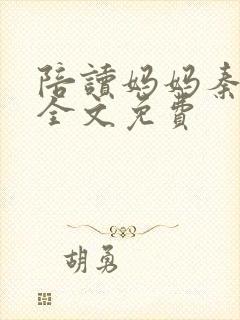 陪讀媽媽秦
全文免費
胡勇